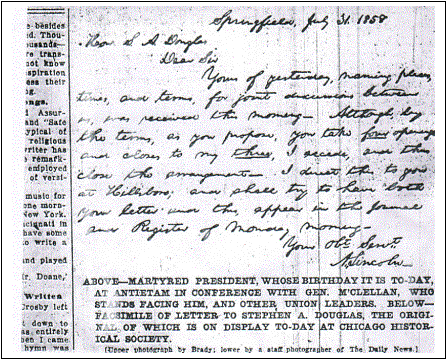 besides
ed. Thou-
ousands—
re trans-
not know
spiration
ess their
ng.
ngs.
d Assur-
and "Safe
typical of
religious
writer has
remark-
employed
of versi-
music for
one moro-
New York.
cinnati in
have some
to write a
and played
r. Doane,'
Written
Crosby left
t down to
as entirely
hen I came
hymn was
Springfield, July 31. 1858
Hon. S. A. Douglas
Dear Sir
Yours of yesterday, naming places,
times, and terms, for joint discussions between
us, was received this morning. Although, by
the terms, as you propose, you take four openings
and closes to my three, I accede, and thus
close the arrangement. I direct this to you
at Hillsboro; and shall try to have both
your letter and this, appear in the Journal
and Register of Monday morning.
Your Obt. Servt.
A. Lincoln
ABOVE—MARTYRED PRESIDENT, WHOSE BIRTHDAY IT IS TO-DAY,
AT ANTIETAM IN CONFERENCE WITH GEN. M'CLELLAN, WHO
STANDS FACING HIM, AND OTHER UNION LEADERS. BELOW—
FACSIMILE OF LETTER TO STEPHEN A. DOUGLAS, THE ORIGI-
NAL OF WHICH IS ON DISPLAY TO-DAY AT CHICAGO HISTOR-
ICAL SOCIETY.
[Upper photograph by Brady; lower by a staff photographer of The Daily News.]